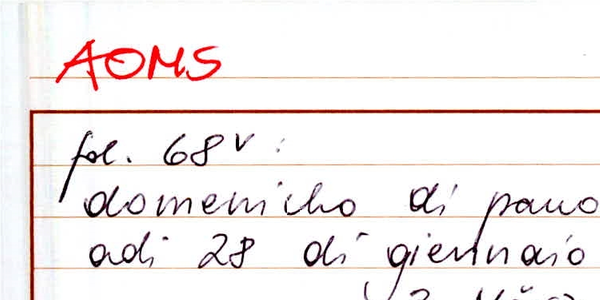 AOMS
fol. 68v:
domenicho di
adi 28 di giennaio